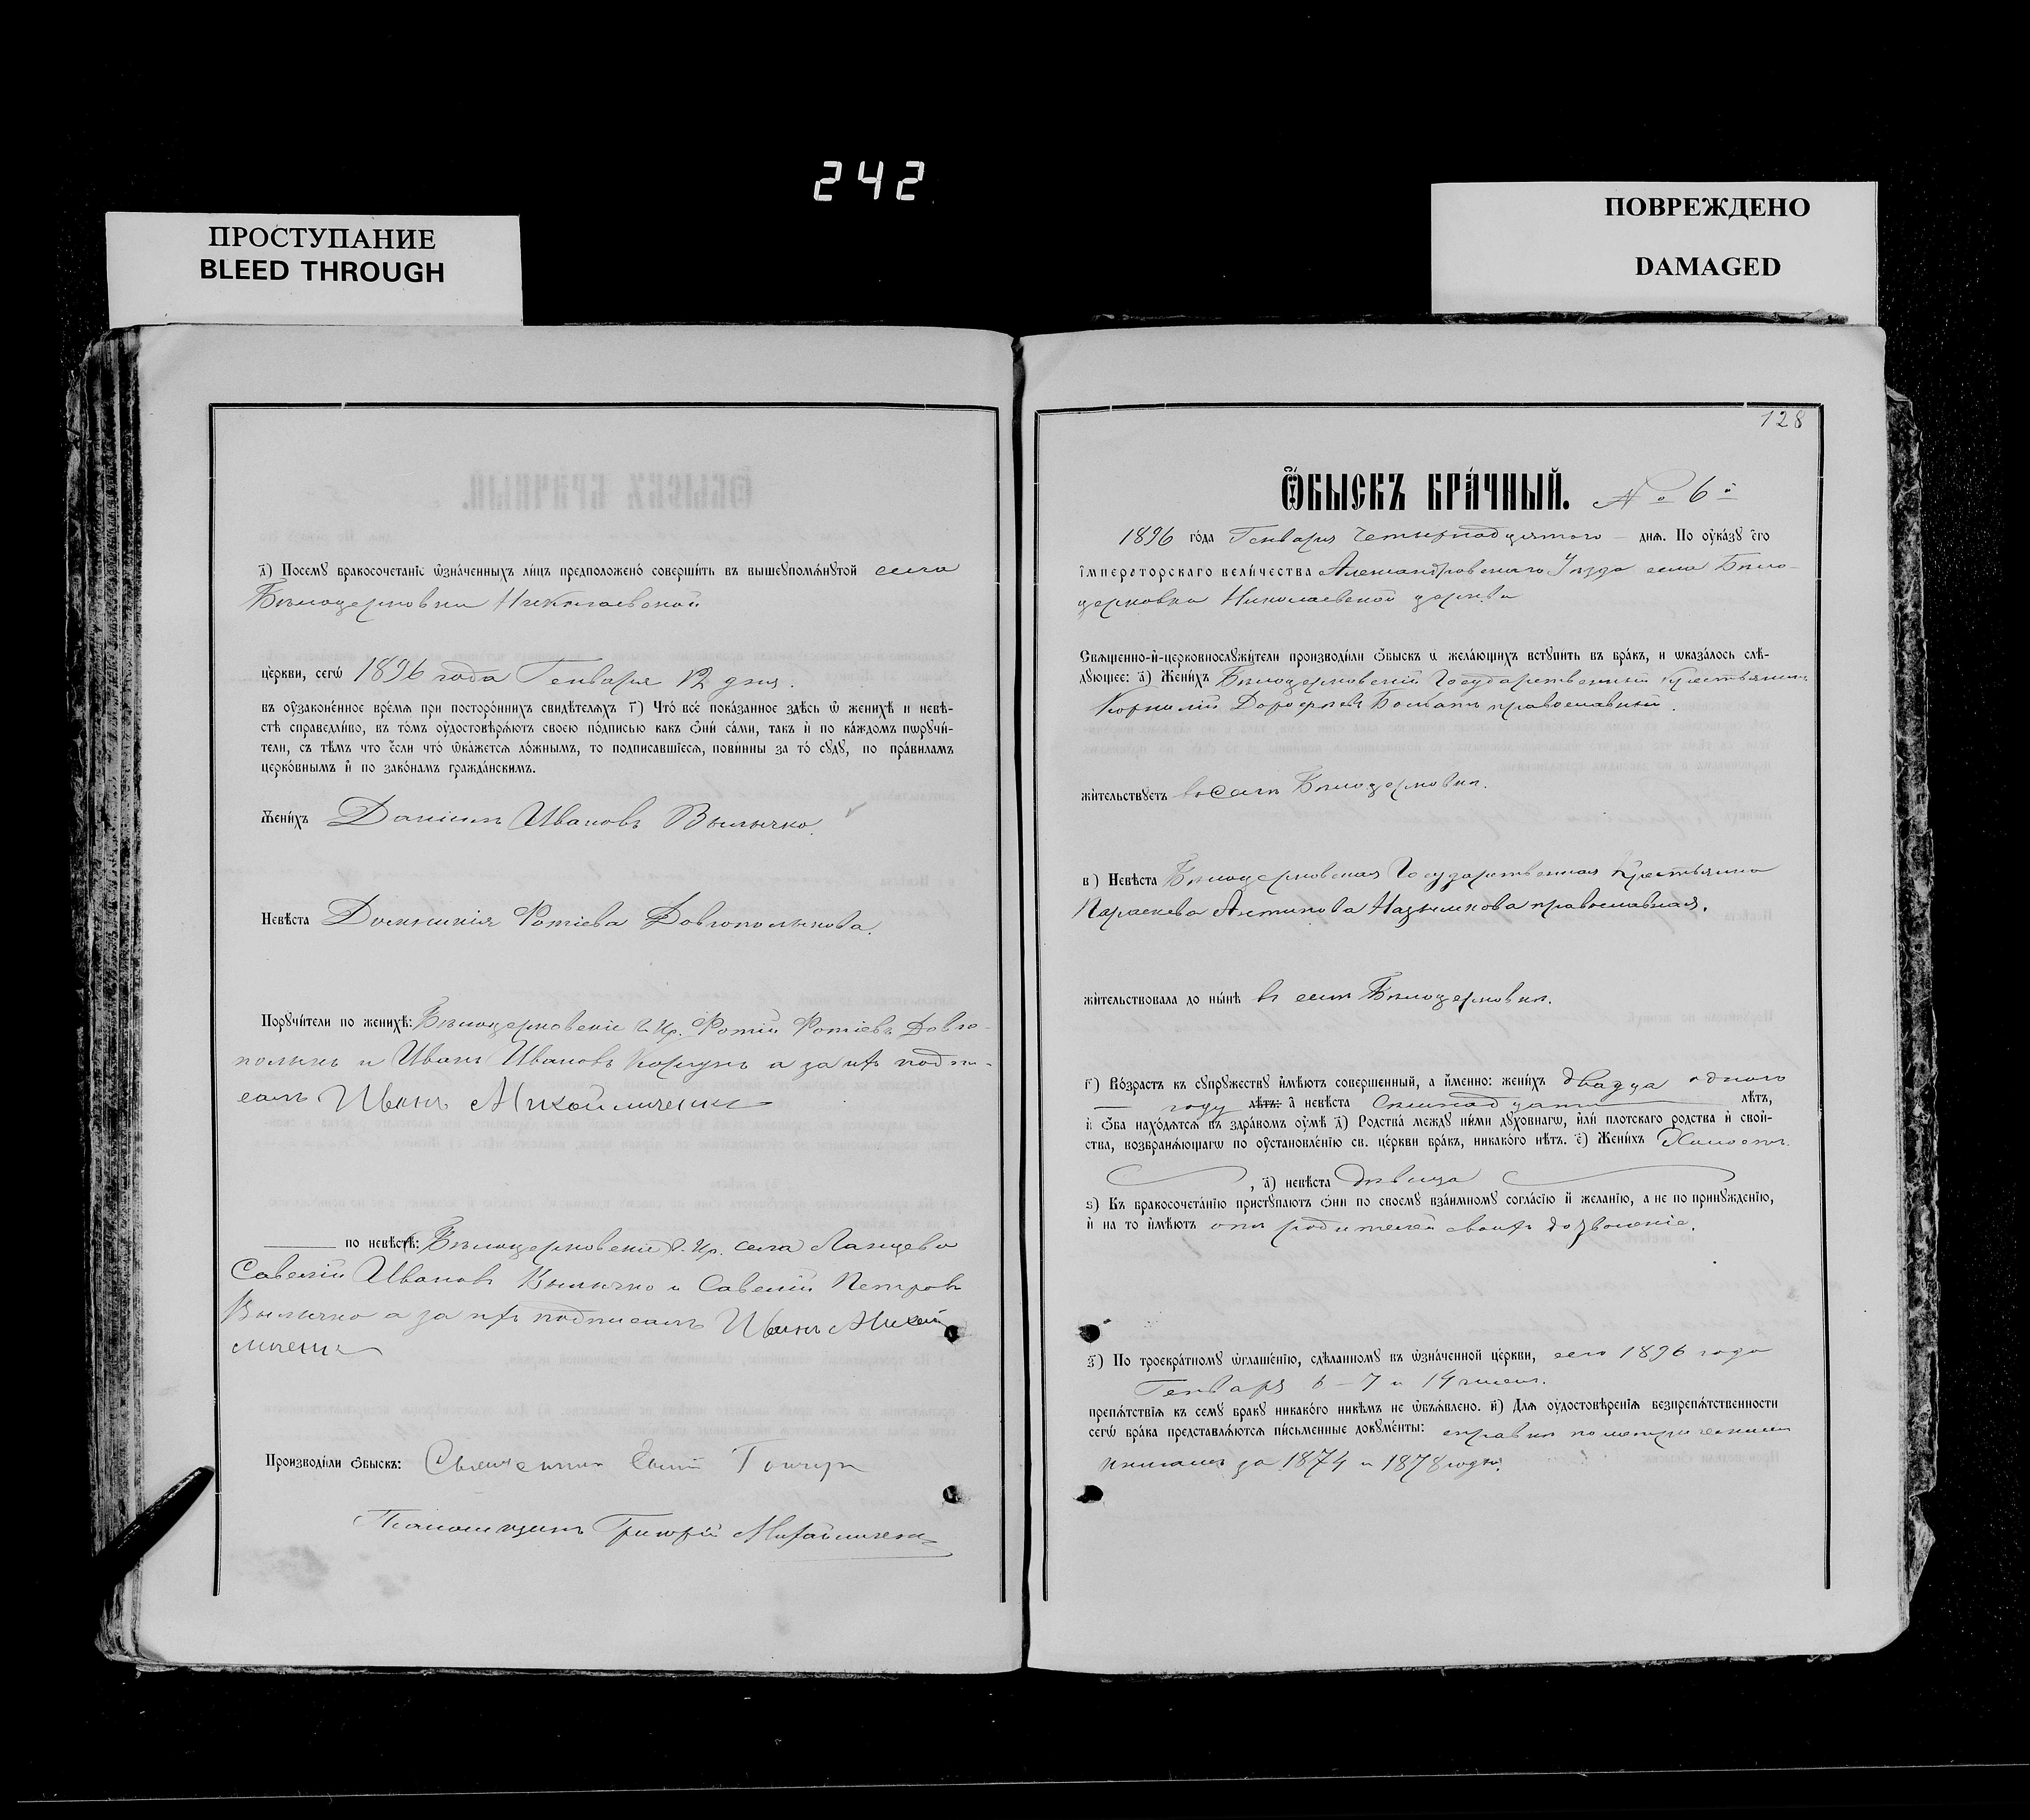 242
ПРОСТУПАНИЕ
BLEED THROUGH
ПОВРЕЖДЕНО
DAMAGED
д҃) Посемꙋ бракосочетанїе ѡзнáченныхъ ли́цъ предположенó соверши́ть въ вышеꙋпомѧ́нꙋтой села
Бѣлоцерковки Николаевской
це́ркви, сегѡ̀ 1896 года Генваря 12 дня.
въ оу҆законе́нное вре́мѧ при посторо́ннихъ свидѣ́телѧхъ г҃) Что̀ все́ пока́занное здѣ́сь ѡ женихѣ̀ и невѣ-
стѣ справедли́во, въ то́мъ оу҆достовѣрѧ́ютъ своею по́дписью какъ Ѻнѝ са́ми, такъ и҆ по ка́ждомъ пѡрꙋчи́-
тели, съ тѣ́мъ что е҆́сли что̀ ѡка́жетсѧ ло́жнымъ, то подписавшїесѧ, пови́нны за то̀ сꙋдꙋ̀, по пра́виламъ
церко́внымъ и҆ по зако́намъ гражда́нскимъ.
Жени́хъ Данiилъ Ивановъ Вылычко.
Невѣ́ста Домникiя Фотiева Довгополыкова.
Порꙋчи́тели по женихѣ̀: Бѣлоцерковскiе Г. Кр. Фотiй Фотiевъ Довго-
полыкъ и Иванъ Ивановъ а за нихъ подпи-
салъ Иванъ Михайличенко
по невѣ́стѣ: Бѣлоцерковскiе Г. Кр. села
Савелiй Ивановъ Вылычко и Савелiй Петровъ
Вылычко а за нихъ подписалъ Иванъ Михай
личенко
Производи́ли Ѻбыскъ: Священникъ
Псаломщикъ Григорiй Михайличенко
128
Ѻ҆БЫСКЪ БРА́ЧНЫЙ. № 6й
1896 го́да Генваря четырнадцатого – днѧ. По оу҆ка́зꙋ е҆гѡ̀
їмператорскаго вели́чества Александровскаго Уѣзда села Бѣло-
церковки Николаевской церкви
Свѧщенно-и҆-церковнослꙋжи́тели производи́ли Ѻбыскъ ѡ҆ жела́ющихъ встꙋпи́ть въ бра́къ, и ѡказа́лось слѣ́-
дꙋющее: а҃) Жени́хъ Бѣлоцерковскiй Государственный Крестьянинъ
Корнилiй Дорофеевъ православный.
жи́тельствꙋетъ въ селѣ Бѣлоцерковкѣ.
в҃) Невѣ́ста Бѣлоцерковская Государственная Крестьянка
Параскева Антипова православная.
жи́тельствовала до ны́нѣ въ селѣ Бѣлоцерковкѣ.
г҃) Во́зрастъ къ сꙋпрꙋжествꙋ и҆мѣ́ютъ совершенный, а и҆́менно: жени́хъ двадца одного
году лѣ́тъ: а҆ невѣ́ста семнадцати лѣ́тъ,
и҆ Ѻба нахо́дѧтсѧ въ здра́вомъ оу҆мѣ̀ д҃) Родства̀ междꙋ ни́ми дꙋхо́внагѡ, и҆лѝ плотскаго родства и҆ свой-
ства̀, возбранѧ́ющагѡ по оу҆становле́нїю св. це́ркви бра́къ, никако́го нѣ́тъ. е҃) Жени́хъ Холостъ.
, а҆) невѣ́ста дѣвица
ѕ҃) Къ бракосочета́нїю пристꙋпа́ютъ Ѻнѝ по своемꙋ взаи́мномꙋ согла́сїю и҆ жела́нїю, а не по принꙋжде́нїю,
и҆ на то и҆мѣ́ютъ отъ родителей своихъ дозволенiе.
з҃) По троекра́тномꙋ ѡглаше́нїю, сдѣ́ланномꙋ въ ѡзна́ченной це́ркви, сего 1896 года
Генваря 6 – 7 и 14 чиселъ.
препѧ́тствїѧ къ семꙋ бракꙋ никако́го никѣ́мъ не ѡб̾ѧ́влено. и҃) Длѧ оу҆достовѣре́нїѧ безпрепѧ́тственности
сегѡ̀ бра́ка представлѧ́ютсѧ пи́сьменные докꙋме́нты: справки по метрическимъ
книгамъ за 1874 и 1878 годы.